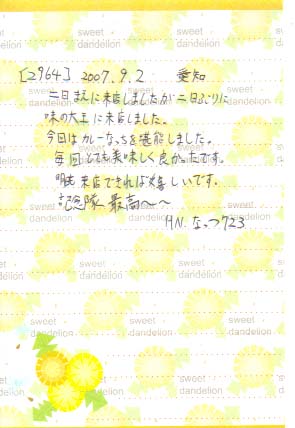 [2964] 2007.9.2 愛知
二日まえに来店しましたが二日ぶりに
味の大王に来店しました。
今回はカレーなっちを堪能しました。
毎回とても美味しく良かったです。
来店できれば嬉しいです。
記念隊 最高〜〜
HN. なっつ723
sweet dandelion